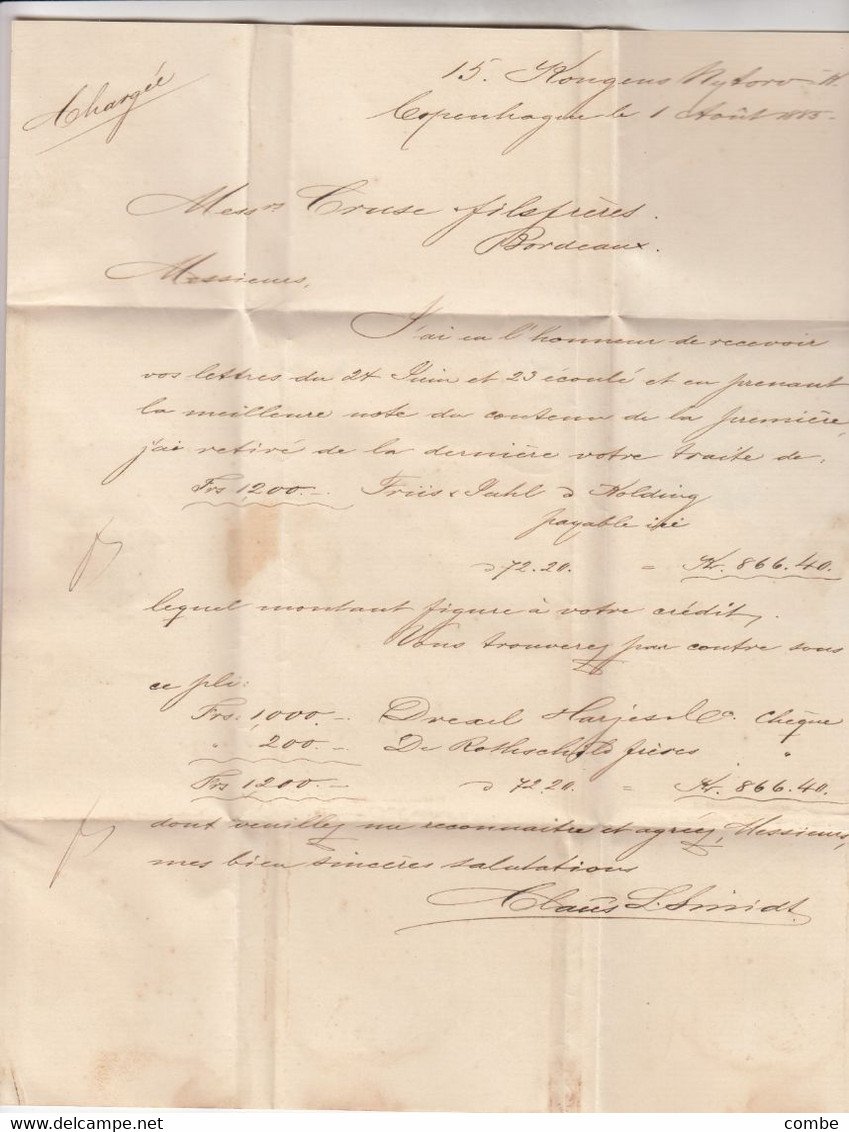 Chargée
15. Kongens Nytorv
Copenhague le 1 Août 1885.
Messrs Cruse fils frères.
Bordeaux.
Messieurs,
J'ai eu l'honneur de recevoir
vos lettres du 24 Juin et 23 écoulé et en prenant
la meilleure note du contenu de la première,
j'ai retiré de la dernière votre traite de:
Frs 1,200.— Friis & Dahl à Kolding
payable ici
à 72.20. = Kr. 866.40.
lequel montant figure à votre crédit.
Vous trouverez par contre sous
ce pli:
Frs: 1,000.— Drexel Harjes & Co. chèque
" 200.— De Rothschild frères "
Frs 1,200.— à 72.20. = Kr. 866.40.
dont veuillez me reconnaitre et agréez, Messieurs,
mes bien sincères salutations
Claus L. Smidt.
delcampe.net
combe